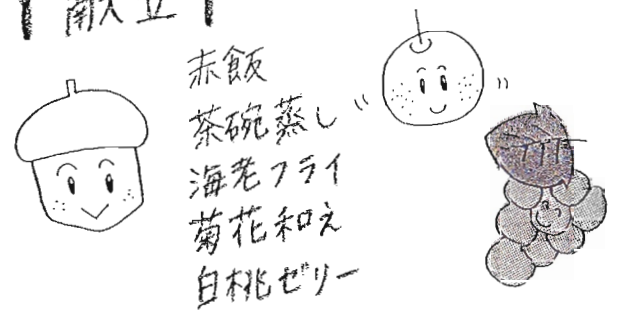 献立
赤飯
茶碗蒸し
海老フライ
菊花和え
白桃ゼリー